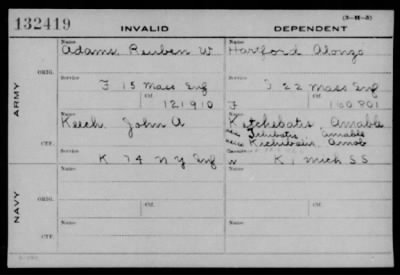 132419
INVALID
DEPENDENT
(3-H-3)
ARMY
ORIG.
Name
Adams, Reuben W.
Name
Hartford Alonzo
Service
F 15 Mass Inf
Service
I 22 Mass Inf
Ctf.
121910
Ctf.
160801
CTF.
Name
Keech, John A
Name
Ketchebatis, Amable
Ketchibatis, Amable
Service
K 74 N Y Inf
K 1 Mich SS
NAVY
ORIG.
Name
Name
Service
Ctf.
Service
Ctf.
CTF.
Name
Name